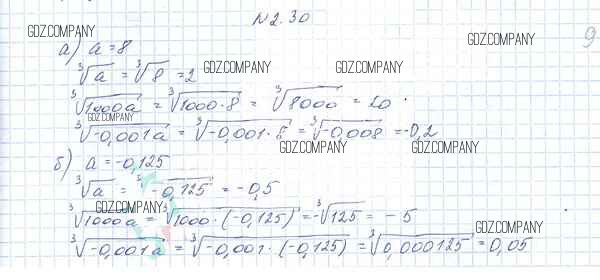 N2.30
GDZ.COMPANY
GDZ.COMPANY
9
а) a = 8
∛a = ∛8 = 2
GDZ.COMPANY
GDZ.COMPANY
∛1000a = ∛1000·8 = ∛8000 = 20
GDZ.COMPANY
∛-0,001a = ∛-0,001·8 = ∛-0,008 = -0,2
GDZ.COMPANY
GDZ.COMPANY
б) a = -0,125
∛a = ∛-0,125 = -0,5
GDZ.COMPANY
∛1000a = ∛1000·(-0,125) = -∛125 = -5
GDZ.COMPANY
∛-0,001a = ∛-0,001·(-0,125) = ∛0,000125 = 0,05